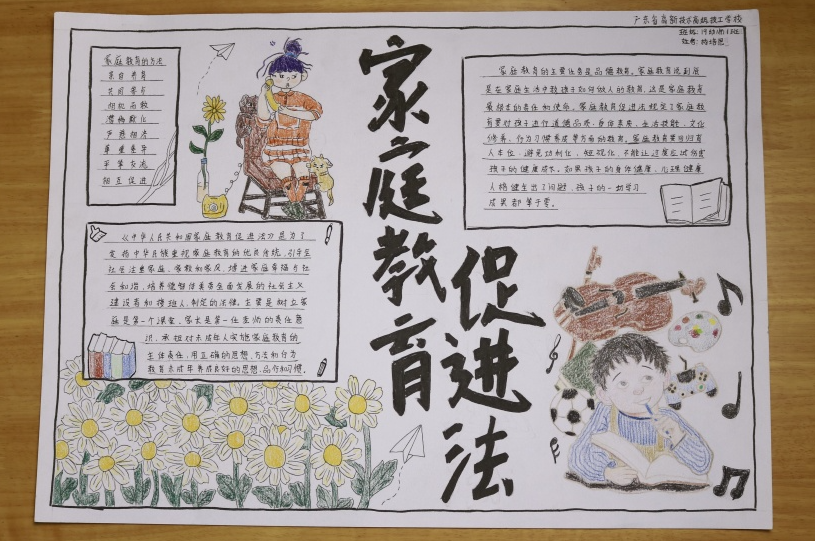 广东省高新技术高级技工学校
家庭教育促进法
家庭教育的方法
亲自养育
共同参与
相机而教
潜移默化
严慈相济
尊重差异
平等交流
相互促进
《中华人民共和国家庭教育促进法》是为了
发扬中华民族重视家庭教育的优良传统,引导全
社会注重家庭、家教和家风,增进家庭幸福与社
会和谐,培养德智体美劳全面发展的社会主义
建设者和接班人,制定的法律。主要是树立家
庭是第一个课堂、家长是第一任老师的责任意
识,承担对未成年人实施家庭教育的
主体责任,用正确的思想、方法和行为
教育未成年养成良好的思想、品行和习惯。
家庭教育的主要任务是品德教育。家庭教育说到底
是在家庭生活中教孩子如何做人的教育,这是家庭教育
最根本的责任和使命。家庭教育促进法规定了家庭教
育要对孩子进行道德品质、身体素质、生活技能、文化
修养、行为习惯等方面的教育。家庭教育要回归育
人本位,避免功利化、短视化,不能让过度应试伤害
孩子的健康成长。如果孩子的身体健康、心理健康
人格健全出了问题,孩子的一切学习
成果都等于零。